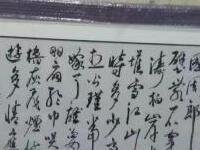 國周郎
壁亂石穿
濤拍岸
堆雪江山
時多少
公瑾當
嫁了雄姿
羽扇綸巾笑
檣灰飛煙
遊多情應